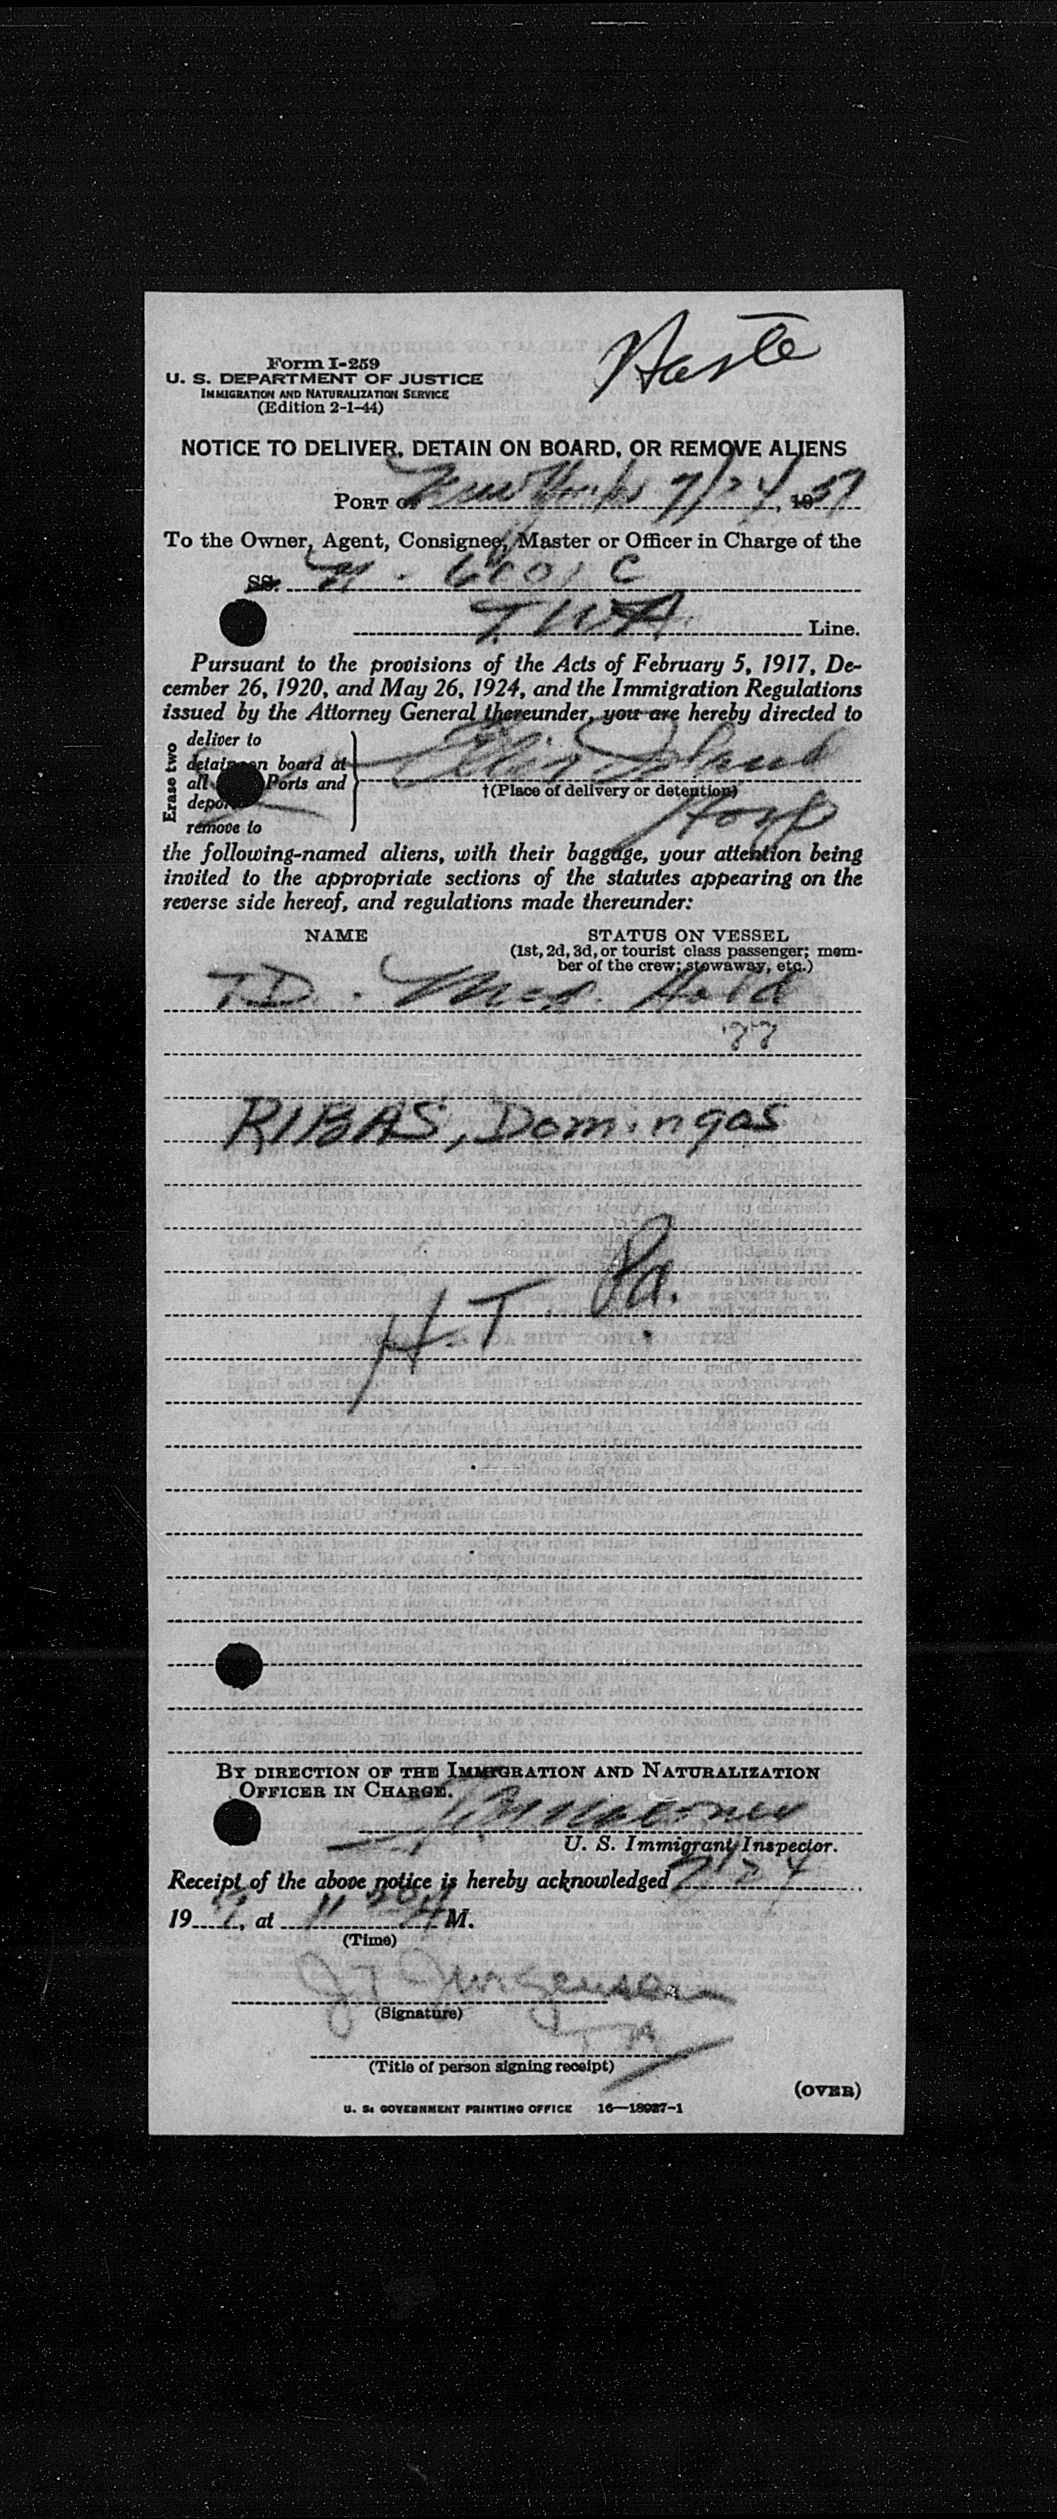 Haste
Form I-259
U. S. DEPARTMENT OF JUSTICE
IMMIGRATION AND NATURALIZATION SERVICE
(Edition 2-1-44)
NOTICE TO DELIVER, DETAIN ON BOARD, OR REMOVE ALIENS
PORT OF New York 7/24, 1951
To the Owner, Agent, Consignee, Master or Officer in Charge of the
SS. N. 6001 C
TWA Line.
Pursuant to the provisions of the Acts of February 5, 1917, De-
cember 26, 1920, and May 26, 1924, and the Immigration Regulations
issued by the Attorney General thereunder, you are hereby directed to
Erase two
deliver to
detain on board at
all Ports and
deport
remove to
Ellis Island
†(Place of delivery or detention)
Hosp
the following-named aliens, with their baggage, your attention being
invited to the appropriate sections of the statutes appearing on the
reverse side hereof, and regulations made thereunder:
NAME STATUS ON VESSEL
(1st, 2d, 3d, or tourist class passenger; mem-
ber of the crew; stowaway, etc.)
T.D. Med. Hold
RIBAS, Domingas
Pa.
H.T
BY DIRECTION OF THE IMMIGRATION AND NATURALIZATION
OFFICER IN CHARGE.
U. S. Immigrant Inspector.
Receipt of the above notice is hereby acknowledged 7/24
19 , at 11 A M.
(Time)
J T Jorgensen
(Signature)
(Title of person signing receipt)
(OVER)
U. S. GOVERNMENT PRINTING OFFICE 16—18937-1